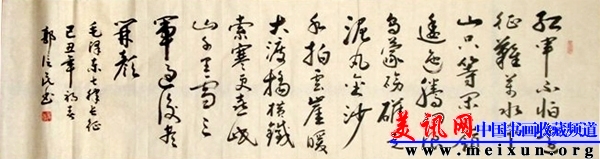 红军不怕远
征難万水千
山只等闲五岭
逶迤腾细浪
乌蒙磅礴走
泥丸金沙
水拍雲崖暖
大渡橋横鐵
索寒更喜岷
山千里雪三
軍過後尽
开颜
毛泽东七律长征
己丑年初春
美讯网
中国书画收藏频道
www.meixun.org